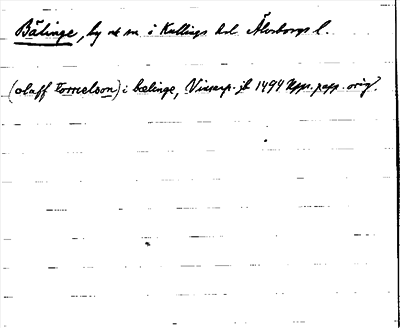 Bälinge, by o sn i Kullings hd. Älvsborgs l.
(olaff tornelson) i bælinge, Vinsarp. jb 1494 Upps. papp. orig.